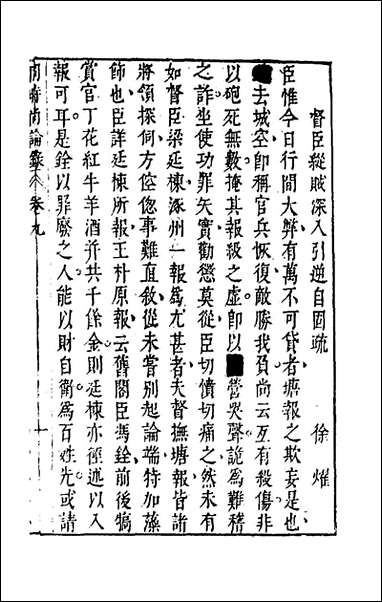 督臣縱賊深入引逆自固疏　徐燿
臣惟今日行間大弊有萬不可貸者塘報之欺妄是也
去城空卽稱官兵恢復敵勝我負尚云互有殺傷非
以砲死無數掩其報殺之虛卽以營哭聲詭爲難稽
之詐坐使功罪失實勸懲莫從臣切憤切痛之然未有
如督臣梁廷棟涿州一報爲尤甚者夫督撫塘報皆諸
將領探伺方倥偬事難直敘從未嘗別起論端特加藻
飾也臣詳廷棟所報王朴原報云舊閣臣馮銓前後犒
賞官丁花紅牛羊酒并共千條金則廷棟亦徑述以入
報可耳是銓以罪廢之人能以財自衛爲百姓先或請
尚論錄卷九